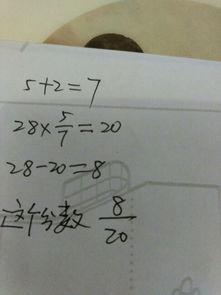 5+2=7
28×5/7=20
28-20=8
这个分数 8/20